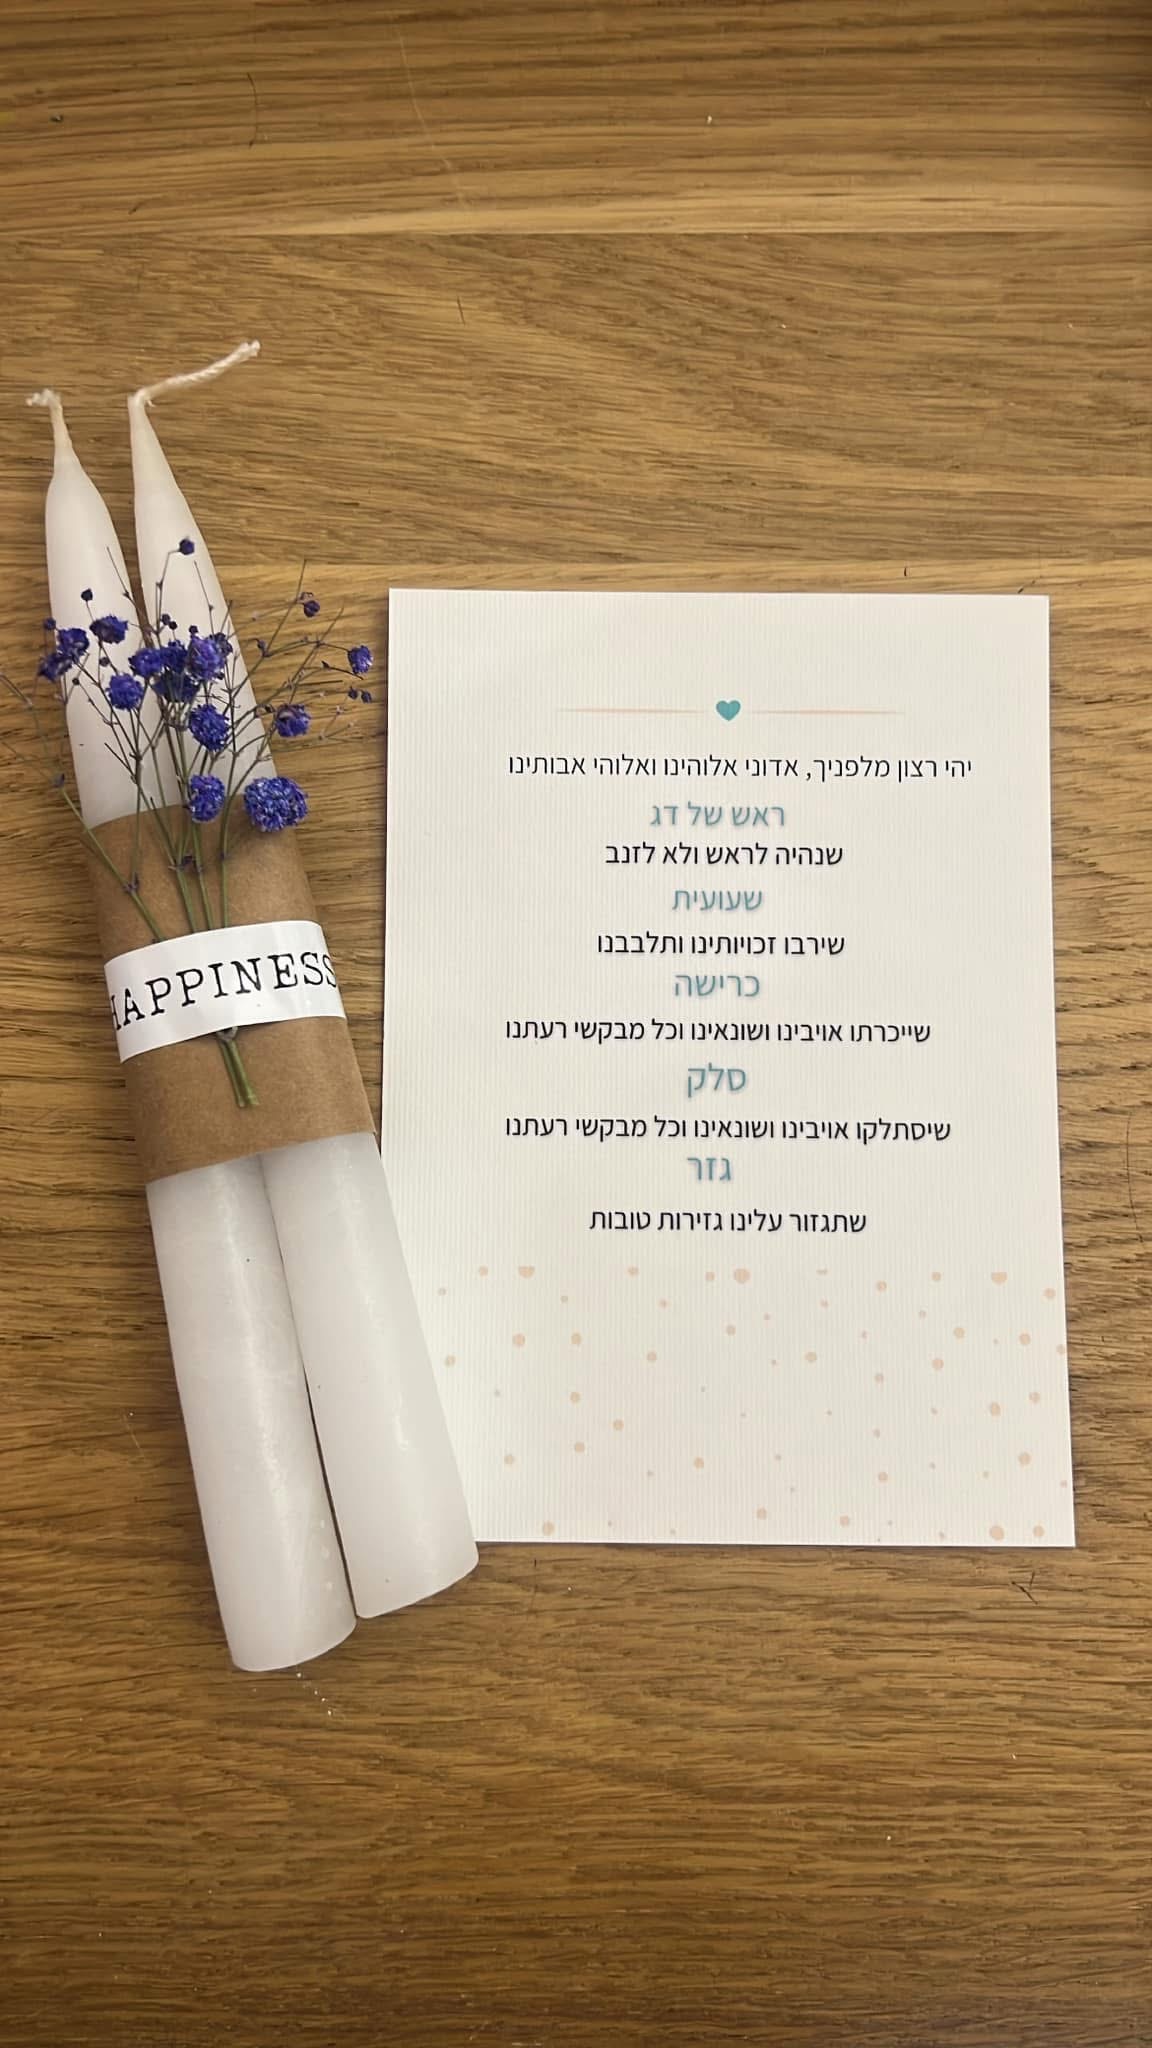 HAPPINESS
יהי רצון מלפניך, אדוני אלוהינו ואלוהי אבותינו
ראש של דג
שנהיה לראש ולא לזנב
שעועית
שירבו זכויותינו ותלבבנו
כרישה
שייכרתו אויבינו ושונאינו וכל מבקשי רעתנו
סלק
שיסתלקו אויבינו ושונאינו וכל מבקשי רעתנו
גזר
שתגזור עלינו גזירות טובות